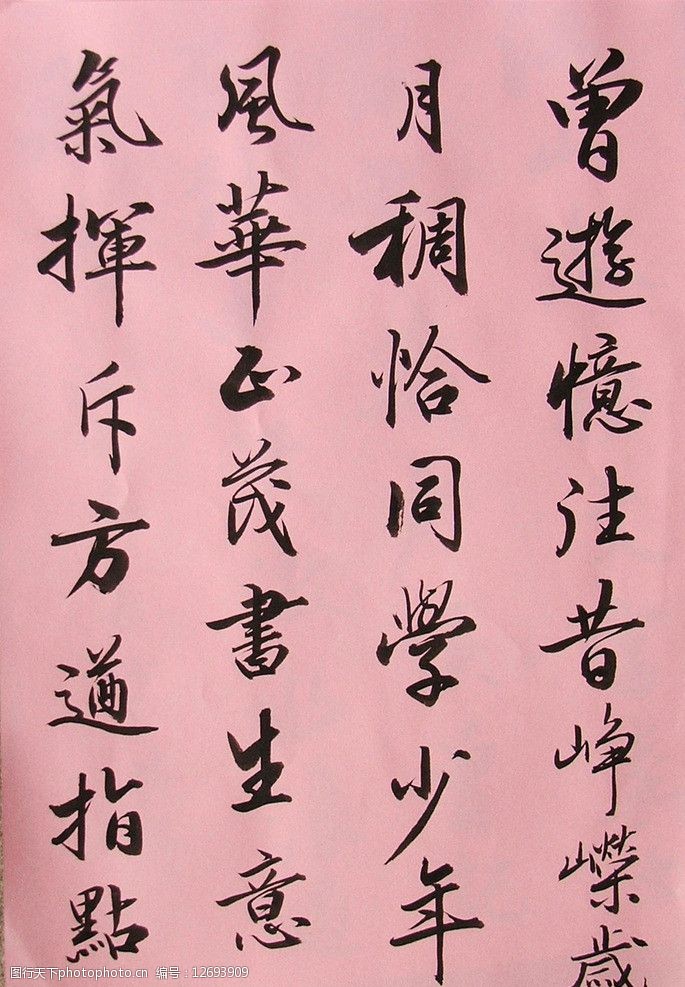 曾遊憶往昔崢嶸歲
月稠恰同學少年
風華正茂書生意
氣揮斥方遒指點
图行天下photophoto.cn 编号：12693909